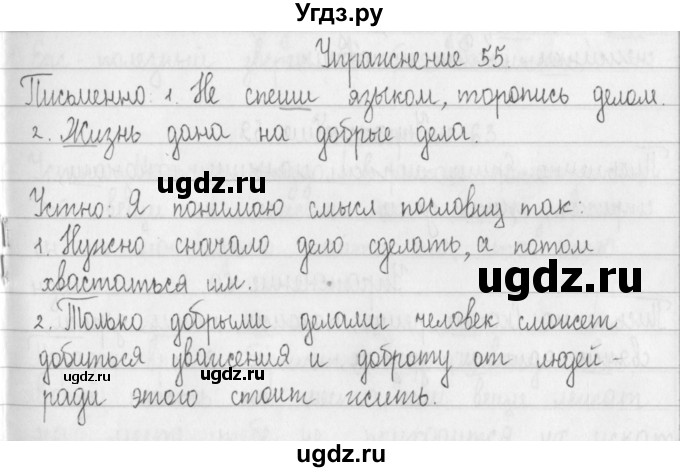 Угдз.ру
Упражнение 55.
Письменно: 1. Не спеши языком, торопись делом.
2. Жизнь дана на добрые дела.
ugdz.ru
Устно: Я понимаю смысл пословиц так:
1. Нужно сначало дело сделать, а потом
хвастаться им.
ugdz.ru
2. Только добрыми делами человек сможет
добиться уважения и доброту от людей -
ugdz.ru
ради этого стоит жить.
ugdz.ru